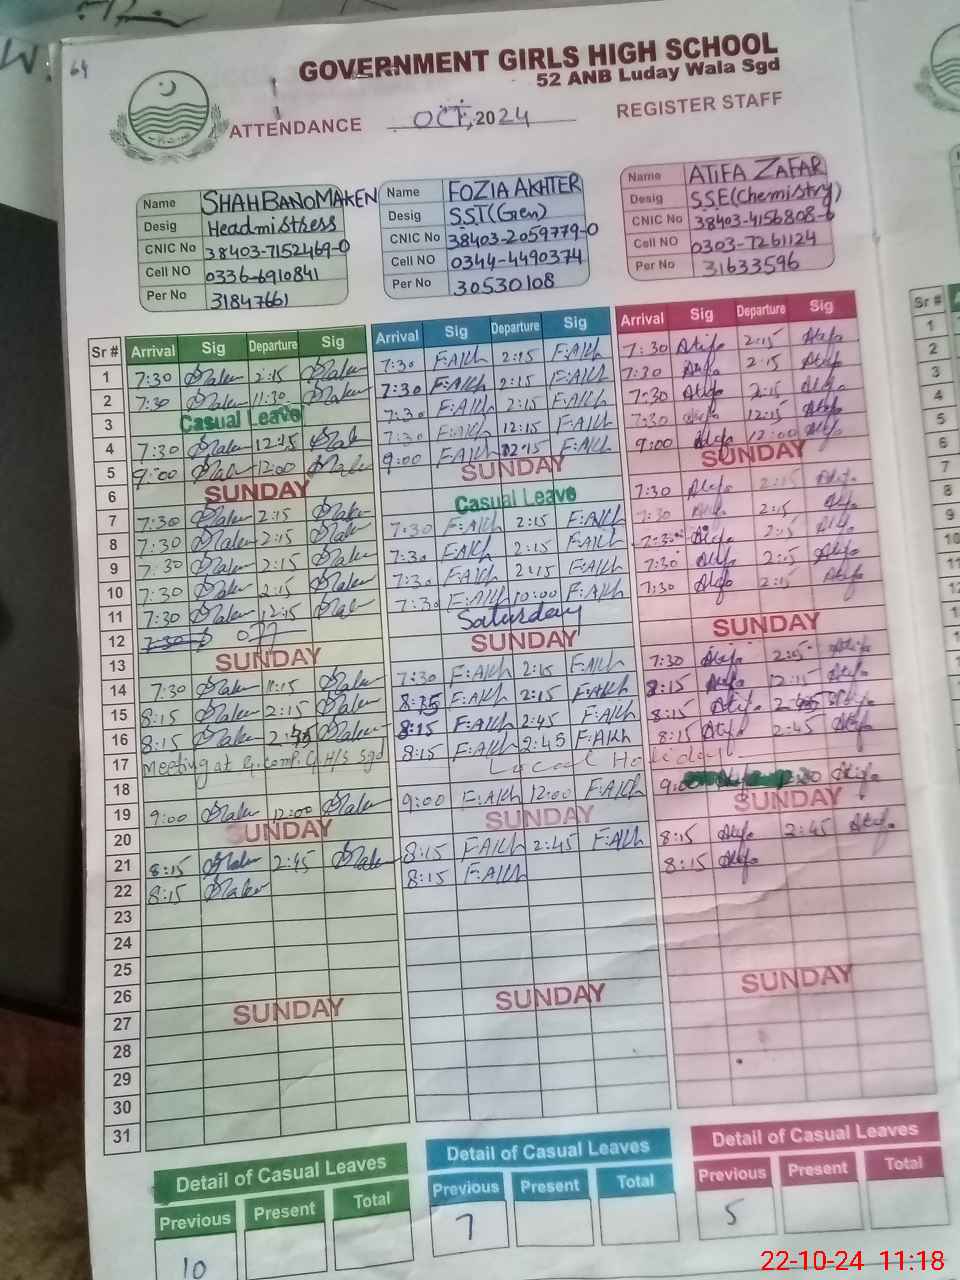 64
GOVERNMENT GIRLS HIGH SCHOOL
52 ANB Luday Wala Sgd
ATTENDANCE OCT, 2024 REGISTER STAFF
Name SHAHBANO MAKEN Name FOZIA AKHTER Name ATIFA ZAFAR
Desig Headmistress Desig SST(Gen) Desig SSE(Chemistry)
CNIC No 38403-7152469-0 CNIC No 38403-2059779-0 CNIC No 38403-4156808-6
Cell NO 0336-6910841 Cell NO 0344-4490374 Cell NO 0303-7261124
Per No 31847661 Per No 30530108 Per No 31633596
Sr # Arrival Sig Departure Sig Arrival Sig Departure Sig Arrival Sig Departure Sig Sr #
1 7:30 Maken 2:15 Maken 7:30 F:AKh 2:15 F:AKh 7:30 Atifa 2:15 Atifa 1
2 7:30 Maken 11:30 Maken 7:30 F:AKh 2:15 F:AKh 7:30 Atifa 2:15 Atifa 2
3 Casual Leave 7:30 F:AKh 2:15 F:AKh 7:30 Atifa 2:15 Atifa 3
4 7:30 Maken 12:15 Maken 7:30 F:AKh 12:15 F:AKh 7:30 Atifa 12:15 Atifa 4
5 9:00 Maken 12:00 Maken 9:00 F:AKh 12:15 F:AKh 9:00 Atifa 12:00 Atifa 5
6 SUNDAY SUNDAY SUNDAY 6
7 7:30 Maken 2:15 Maken Casual Leave 7:30 Atifa 2:15 Atifa 7
8 7:30 Maken 2:15 Maken 7:30 F:AKh 2:15 F:AKh 7:30 Atifa 2:15 Atifa 8
9 7:30 Maken 2:15 Maken 7:30 F:AKh 2:15 F:AKh 7:30 Atifa 2:15 Atifa 9
10 7:30 Maken 2:15 Maken 7:30 F:AKh 2:15 F:AKh 7:30 Atifa 2:15 Atifa 10
11 7:30 Maken 12:15 Maken 7:30 F:AKh 10:00 F:AKh 7:30 Atifa 2:15 Atifa 11
12 7:30 Saturday
13 SUNDAY SUNDAY SUNDAY
14 7:30 Maken 11:15 Maken 7:30 F:AKh 2:15 F:AKh 7:30 Atifa 2:15 Atifa
15 8:15 Maken 2:15 Maken 8:15 F:AKh 2:15 F:AKh 8:15 Atifa 12:15 Atifa
16 8:15 Maken 2:45 Maken 8:15 F:AKh 2:45 F:AKh 8:15 Atifa 2:45 Atifa
17 Meeting at G. comp. G H/S sgd 8:15 F:AKh 2:45 F:AKh 8:15 Atifa 2:45 Atifa
18 Local Holiday
19 9:00 Maken 12:00 Maken 9:00 F:AKh 12:00 F:AKh 9:00 Atifa
20 SUNDAY SUNDAY SUNDAY
21 8:15 Maken 2:45 Maken 8:15 F:AKh 2:45 F:AKh 8:15 Atifa 2:45 Atifa
22 8:15 Maken 8:15 F:AKh 8:15 Atifa
23
24
25
26
27 SUNDAY SUNDAY SUNDAY
28
29
30
31
Detail of Casual Leaves Detail of Casual Leaves Detail of Casual Leaves
Previous Present Total Previous Present Total Previous Present Total
10 7 5
22-10-24 11:18